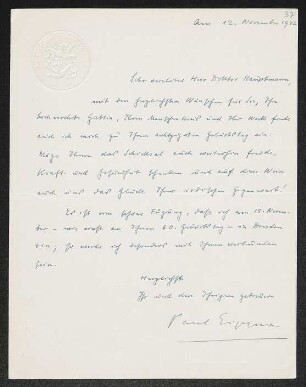 37
Am 12. November 1942
Sehr verehrter Herr Doktor Hauptmann,
mit den herzlichsten Wünschen für Sie, Ihre
Gattin, Ihr Menschen und Ihr Werk finde
auch ich mich zu Ihrem achtzigsten Geburtstag ein.
Möge Ihnen das Schicksal auch weiterhin Freude,
Kraft und Gesundheit schenken und auf dem Wein
auch uns das Glück Ihrer irdischen Gegenwart!
Es ist eine schöne Fügung, daß ich am 15. Novem-
ber – wie einst an Ihrem 60. Geburtstag – in Dresden
bin, so werde ich besonders mit Ihnen verbunden
sein.
Herzlichst
Ihr und der Ihrigen getreuer
Paul